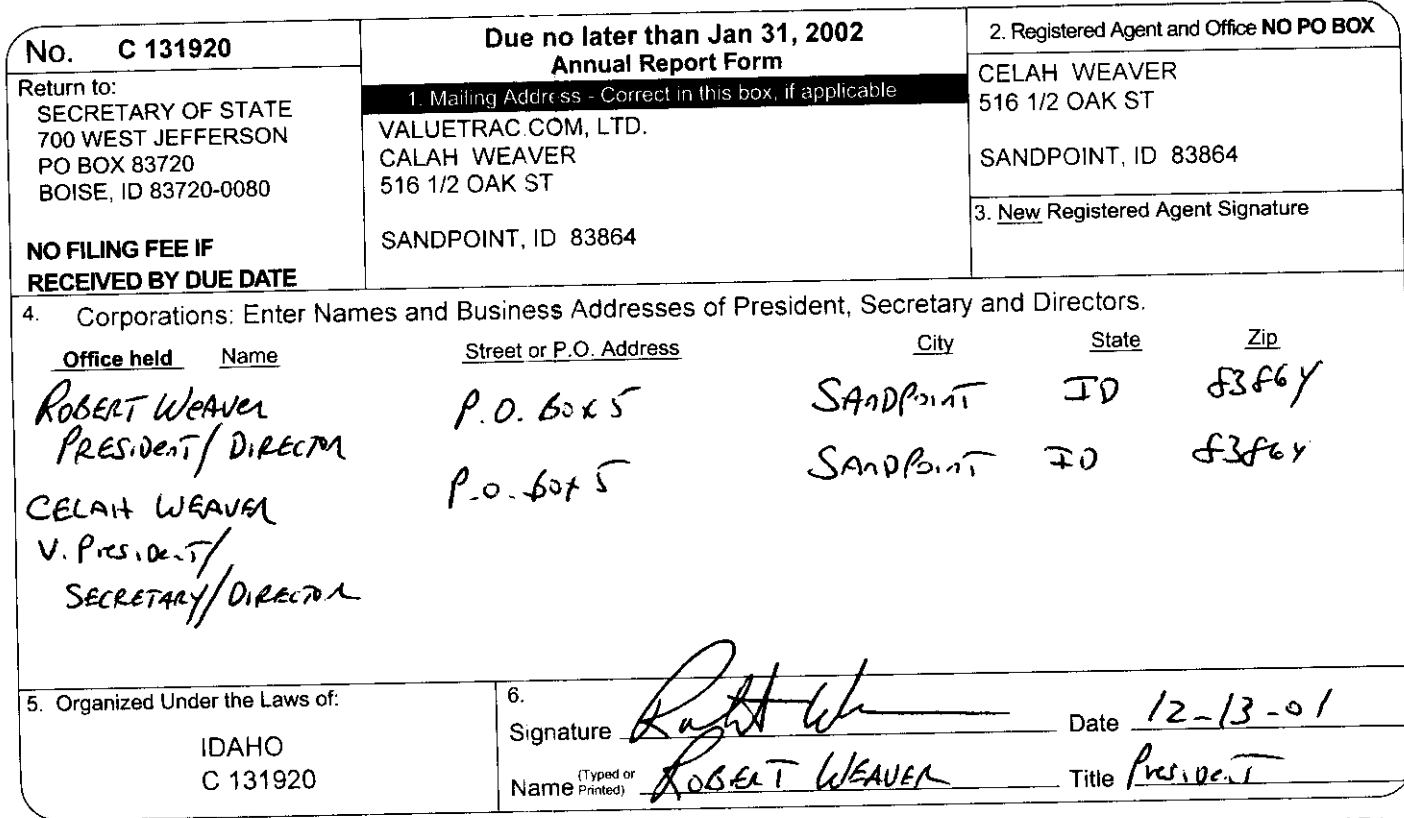 No. C 131920
Return to:
SECRETARY OF STATE
700 WEST JEFFERSON
PO BOX 83720
BOISE, ID 83720-0080
NO FILING FEE IF
RECEIVED BY DUE DATE
Due no later than Jan 31, 2002
Annual Report Form
1. Mailing Address - Correct in this box, if applicable
VALUETRAC.COM, LTD.
CALAH WEAVER
516 1/2 OAK ST
SANDPOINT, ID 83864
2. Registered Agent and Office NO PO BOX
CELAH WEAVER
516 1/2 OAK ST
SANDPOINT, ID 83864
3. New Registered Agent Signature
4. Corporations: Enter Names and Business Addresses of President, Secretary and Directors.
Office held Name Street or P.O. Address City State Zip
ROBERT WEAVER P.O. Box 5 SANDPOINT ID 83864
PRESIDENT/DIRECTOR
CELAH WEAVER P.O. Box 5 SANDPOINT ID 83864
V. PRESIDENT/
SECRETARY/DIRECTOR
5. Organized Under the Laws of:
IDAHO
C 131920
6.
Signature Robert Weaver Date 12-13-01
Name (Typed or Printed) ROBERT WEAVER Title President